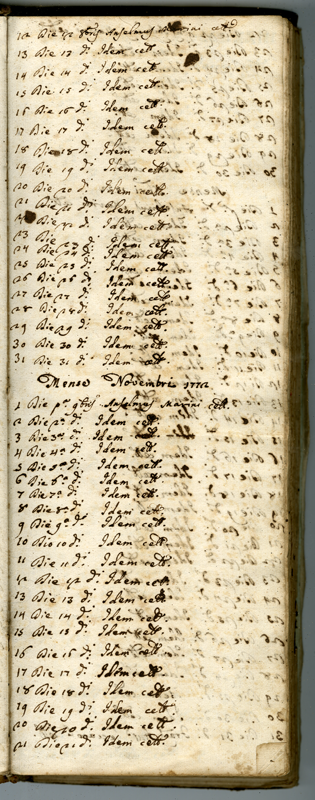 12 Die 12 8bris Anselmus Marini cett.
13 Die 13 d.i Idem cett.
14 Die 14 d.i Idem cett.
15 Die 15 d.i Idem cett.
16 Die 16 d.i Idem cett.
17 Die 17 d.i Idem cett.
18 Die 18 d.i Idem cett.
19 Die 19 d.i Idem cett.
20 Die 20 d.i Idem cett.
21 Die 21 d.i Idem cett.
Die 22 d.i Idem cett.
23 Die 23 d.i Idem cett.
24 Die 24 d.i Idem cett.
25 Die 25 d.i Idem cett.
26 Die 26 d.i Idem cett.
27 Die 27 d.i Idem cett.
28 Die 28 d.i Idem cett.
29 Die 29 d.i Idem cett.
30 Die 30 d.i Idem cett.
31 Die 31 d.i Idem cett.
Mense Novembre 1772
1 Die p.a 9bris Anselmus Marini cett.
2 Die 2.a d.i Idem cett.
3 Die 3.a d.i Idem cett.
4 Die 4.a d.i Idem cett.
5 Die 5.a d.i Idem cett.
6 Die 6.a d.i Idem cett.
7 Die 7.a d.i Idem cett.
8 Die 8.a d.i Idem cett.
9 Die 9.a d.i Idem cett.
10 Die 10 d.i Idem cett.
11 Die 11 d.i Idem cett.
12 Die 12 d.i Idem cett.
13 Die 13 d.i Idem cett.
14 Die 14 d.i Idem cett.
15 Die 15 d.i Idem cett.
16 Die 16 d.i Idem cett.
17 Die 17 d.i Idem cett.
18 Die 18 d.i Idem cett.
19 Die 19 d.i Idem cett.
20 Die 20 d.i Idem cett.
21 Die 21 d.i Idem cett.